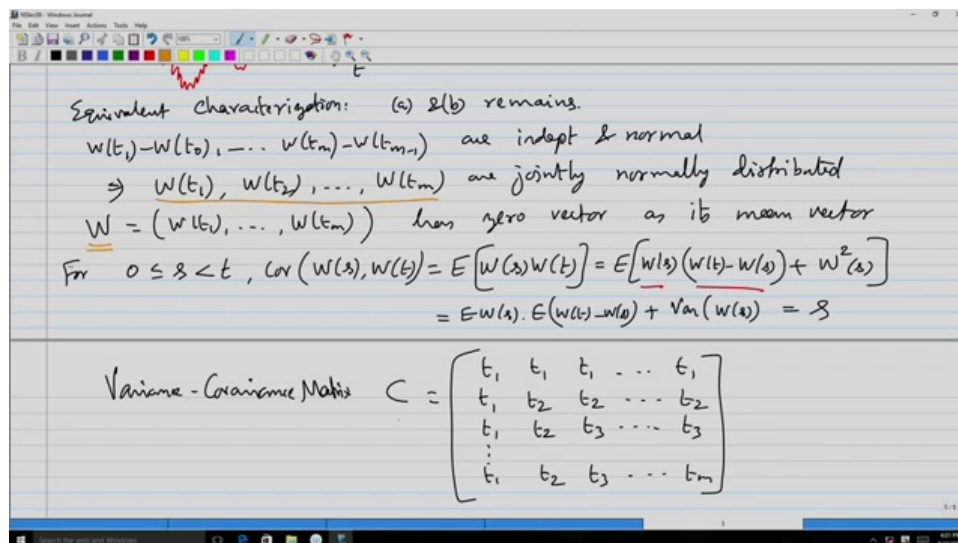 NSlec09 - Windows Journal
File Edit View Insert Actions Tools Help
B I
t
Equivalent characterization: (a) &(b) remains.
W(t₁)-W(t₀), -... W(tₘ)-W(tₘ₋₁) are indept & normal
⇒ W(t₁), W(t₂), ..., W(tₘ) are jointly normally distributed
W = (W(t₁), ..., W(tₘ)) has zero vector as its mean vector
For 0 ≤ s < t, Cov(W(s), W(t)) = E[W(s)W(t)] = E[W(s)(W(t)-W(s)) + W²(s)]
= EW(s). E(W(t)-W(s)) + Var(W(s)) = s
Variance-Covariance Matrix C = [
t₁ t₁ t₁ ... t₁
t₁ t₂ t₂ ... t₂
t₁ t₂ t₃ .... t₃
⋮
t₁ t₂ t₃ ... tₘ ]
5/5
5
Search the web and Windows
4:01 PM